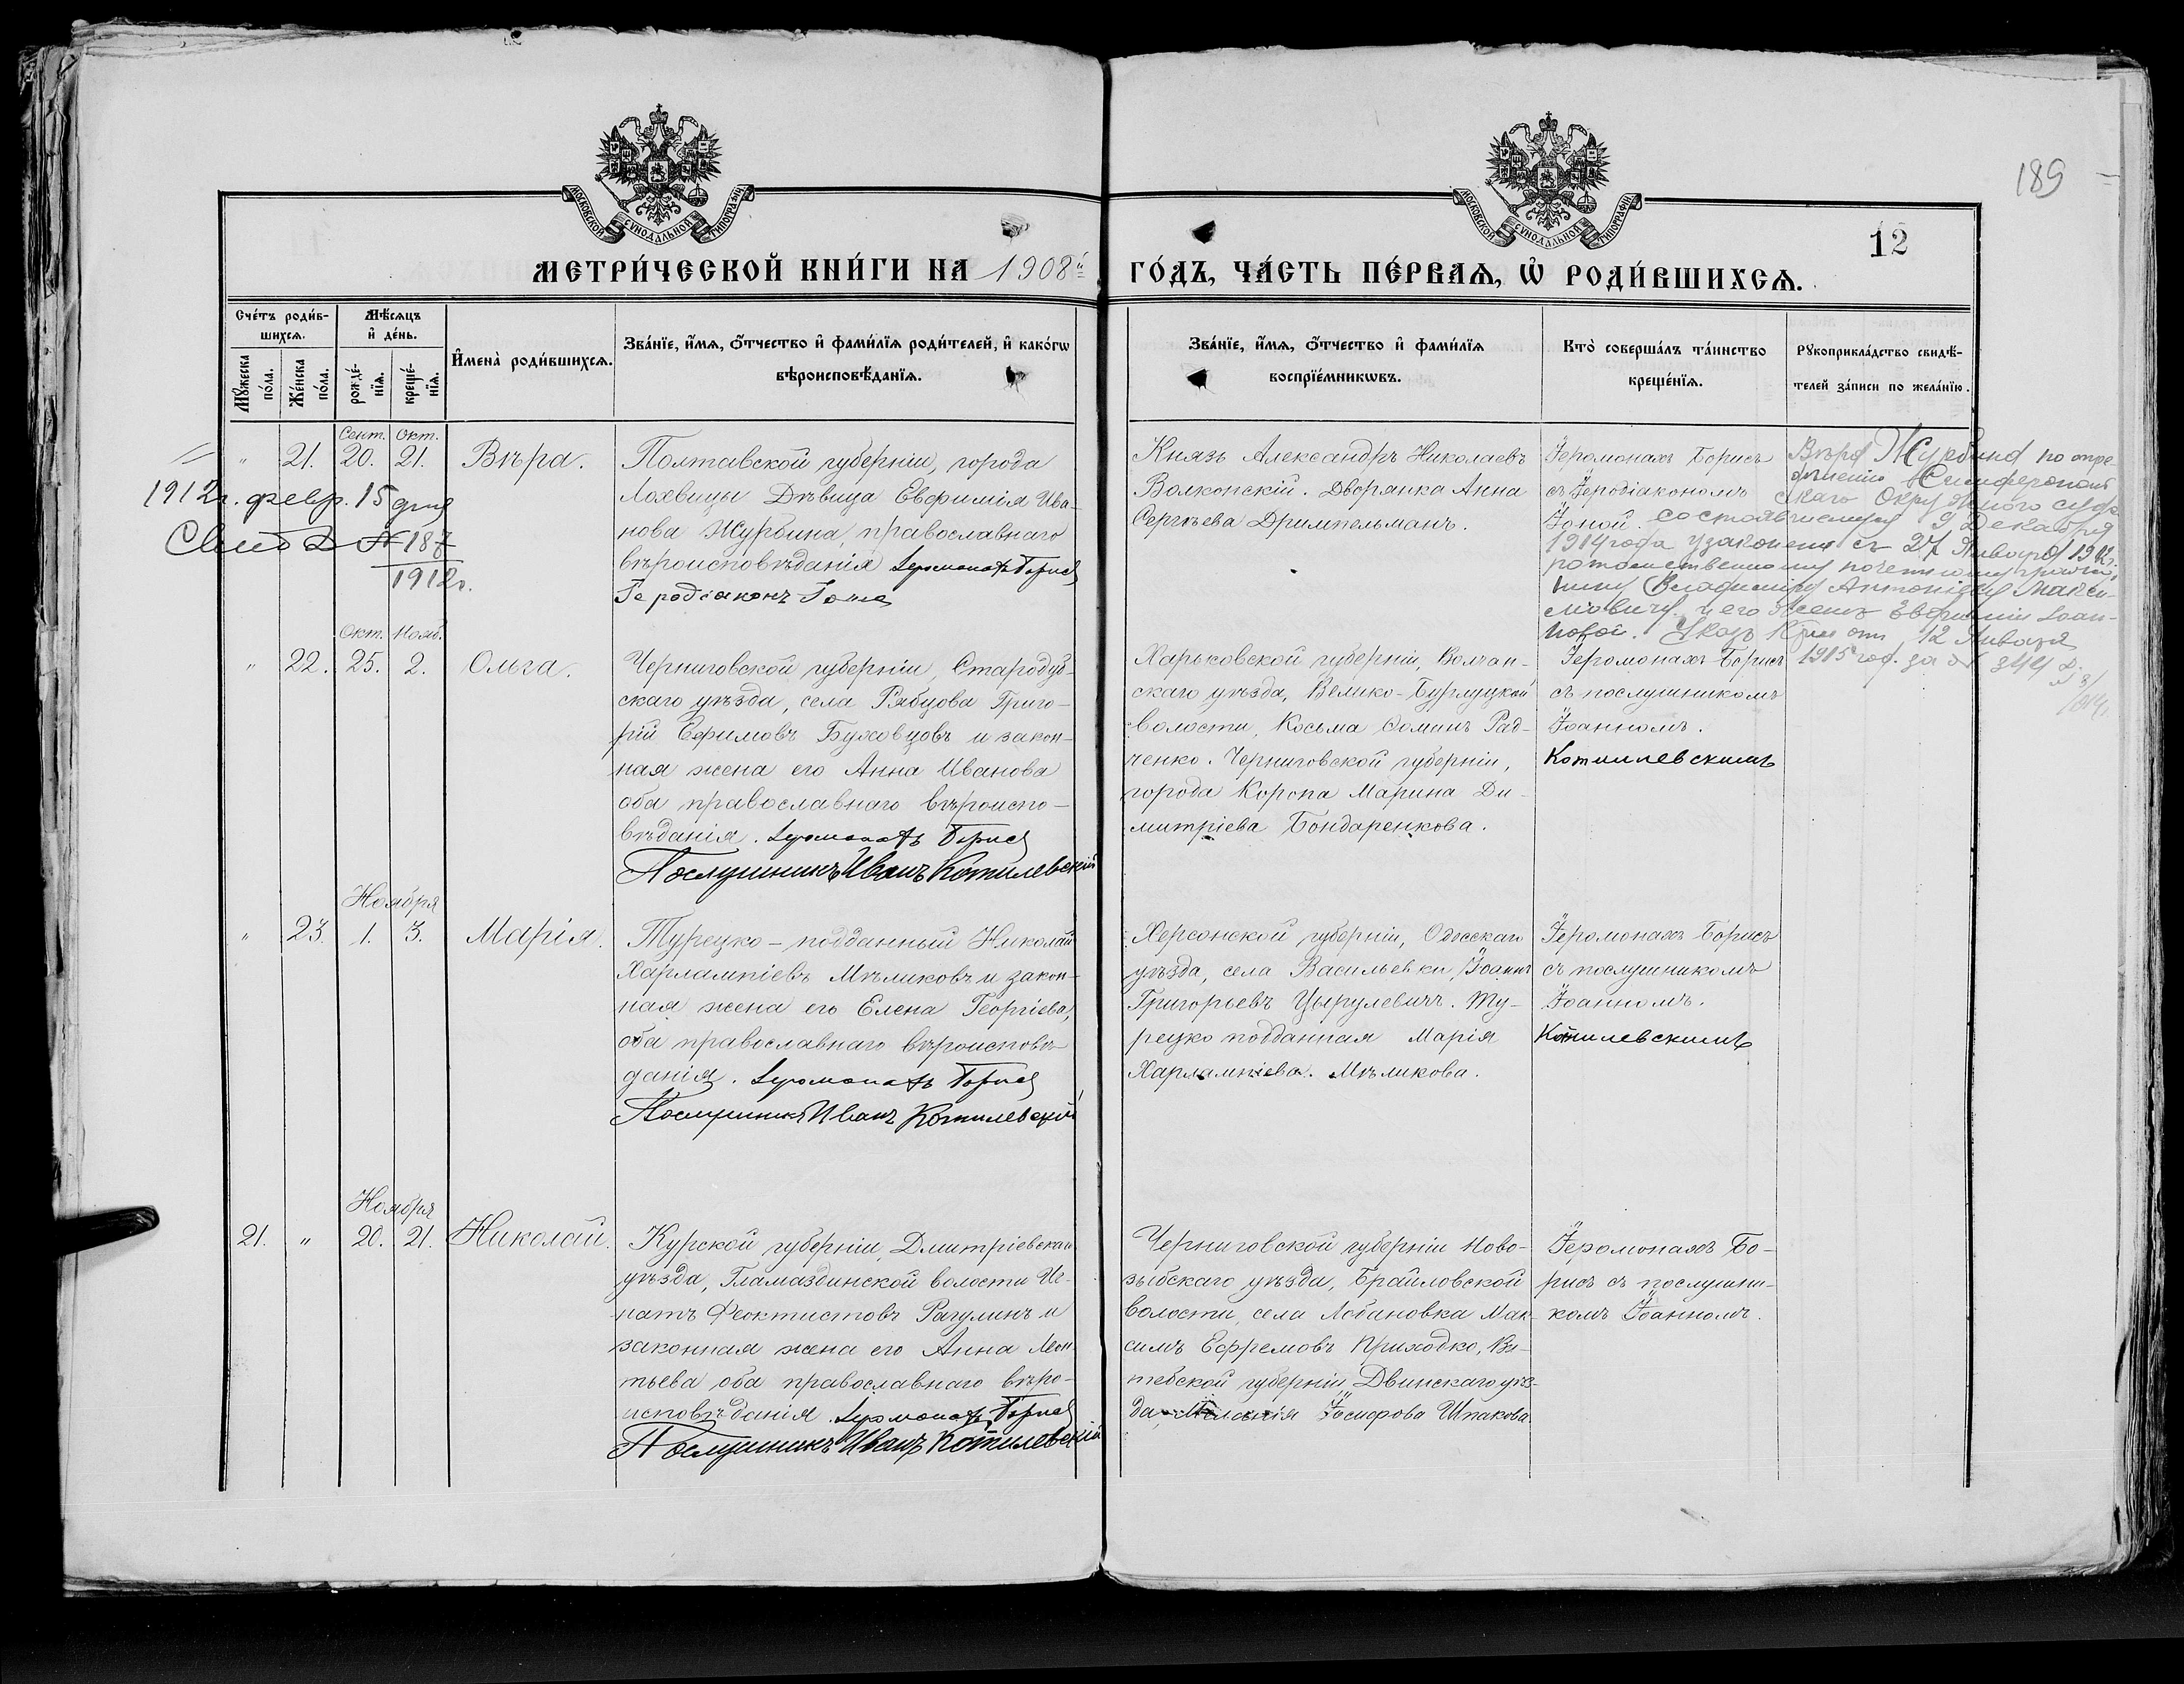 189
12
МОСКОВСКОЙ СѴНОДАЛЬНОЙ ТИПОГРАФІИ
МОСКОВСКОЙ СѴНОДАЛЬНОЙ ТИПОГРАФІИ
МЕТРИ́ЧЕСКОЙ КНИ́ГИ НА 1908й ГО́ДЪ, ЧА́СТЬ ПЕ́РВАѦ, Ѡ҆ РОДИ́ВШИХСѦ.
Сче́тъ роди́в-
шихсѧ.
Мꙋ́жеска по́ла.
Же́нска по́ла.
Мѣ́сѧцъ
и҆ де́нь.
рожде́-нїѧ.
креще́-нїѧ.
И҆мена̀ роди́вшихсѧ.
Зва́нїе, и҆́мѧ, ѻ҆́тчество и҆ фами́лїѧ роди́телей, и҆ како́гѡ
вѣроисповѣ́данїѧ.
Зва́нїе, и҆́мѧ, ѻ҆́тчество и҆ фами́лїѧ
воспрїе́мникѡвъ.
Кто̀ соверша́лъ та́инство
креще́нїѧ.
Рꙋкоприкла́дство свидѣ́-
телей за́писи по жела́нїю.
Сент. Окт.
" 21. 20. 21. Вѣра.
1912г. февр. 15 дня
Свид № 187
1912г.
Полтавской губерніи, города
Лохвицы Дѣвица Евфимія Ива-
нова Журбина, православнаго
вѣроисповѣданія Іеромонахъ Борисъ
Іеродіаконъ Іона
Князь Александръ Николаевъ
Волконскій. Дворянка Анна
Сергѣева Дримпельманъ.
Іеромонахъ Борисъ
съ Іеродіакономъ
Іоной.
Вѣра Журбина по опре-
дѣленію Симферополь
скаго Окружного суда
состоявшемуся 9 Декабря
1914 года узаконена съ 27 Января 1912г.
потомственному почетному гражда-
нину Владимиру Антоніеву Макси-
мовичу и его женѣ Евфиміи Іоан-
новой. Указъ отъ 12 Января
1915 год. за № 344
Окт. Нояб.
" 22. 25. 2. Ольга.
Черниговской губерніи, Стародуб-
скаго уѣзда, села Рябцова Григо-
рій Ефимовъ Буховцовъ и закон-
ная жена его Анна Иванова
оба православнаго вѣроиспо-
вѣданія. Іеромонахъ Борисъ
Послушникъ Иванъ Котилевскій
Харьковской губерніи, Волчан-
скаго уѣзда, Велико-Бурлуцкой
волости, Косьма Фоминъ Рад-
ченко. Черниговской губерніи,
города Коропа Марина Ди-
митріева Бондаренкова.
Іеромонахъ Борисъ
съ послушникомъ
Іоанномъ.
Котилевскимъ
Ноября
" 23. 1. 3. Марія.
Турецко-подданный Николай
Харлампіевъ Мѣликовъ и закон-
ная жена его Елена Георгіева,
оба православнаго вѣроисповѣ-
данія. Іеромонахъ Борисъ
Послушникъ Иванъ Котилевскій
Херсонской губерніи, Одесскаго
уѣзда, села Васильевки, Іоаннъ
Григорьевъ Цырулевичъ. Ту-
рецко подданная Марія
Харлампіева. Мѣликова.
Іеромонахъ Борисъ
съ послушникомъ
Іоанномъ.
Котилевскимъ
Ноября
21. " 20. 21. Николай.
Курской губерніи, Дмитріевскаго
уѣзда, Гламаздинской волости Иг-
натъ Феоктистовъ Рагулинъ и
законная жена его Анна Леон
тьева оба православнаго вѣро-
исповѣданія. Іеромонахъ Борисъ
Послушникъ Иванъ Котилевскій
Черниговской губерніи Ново-
зыбскаго уѣзда, Брайловской
волости, села Лобановка Мак-
симъ Ефремовъ Приходко, Ви-
тебской губерніи, Двинскаго уѣз-
да Меланія Іосифова Шпакова.
Іеромонахъ Бо-
рисъ съ послушни-
комъ Іоанномъ.